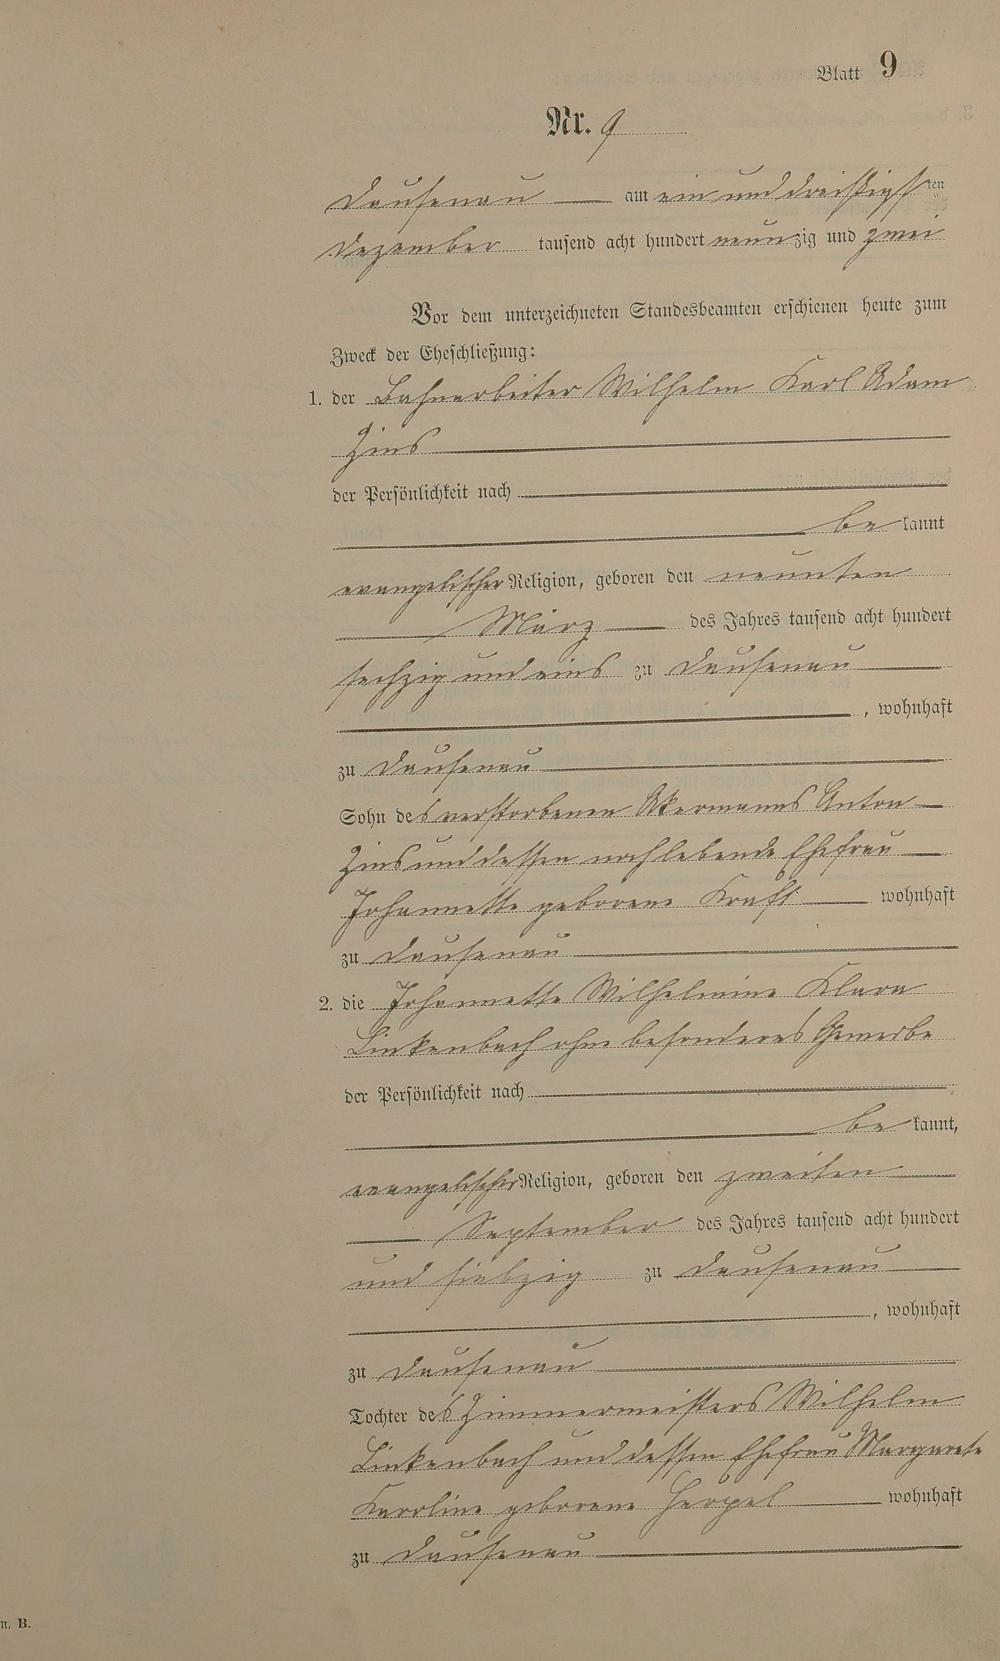 Blatt 9
Nr. 9
Dausenau am ein und dreißigsten
Dezember tausend acht hundert neunzig und zwei
Vor dem unterzeichneten Standesbeamten erschienen heute zum
Zweck der Eheschließung:
1. der Bahnarbeiter Wilhelm Karl Adam
Zins
der Persönlichkeit nach
be kannt
evangelischer Religion, geboren den neunten
März des Jahres tausend acht hundert
sechzig und eins zu Dausenau
, wohnhaft
zu Dausenau
Sohn des verstorbenen Akermanns Anton
Zins und dessen noch lebende Ehefrau
Johannette geborene Kraft wohnhaft
zu Dausenau
2. die Johannette Wilhelmine Klara
Linkenbach ohne besonderes Gewerbe
der Persönlichkeit nach
be kannt,
evangelischer Religion, geboren den zweiten
September des Jahres tausend acht hundert
und siebzig zu Dausenau
, wohnhaft
zu Dausenau
Tochter des Zimmermeisters Wilhelm
Linkenbach und dessen Ehefrau Margarete
Karoline geborene Herpel wohnhaft
zu Dausenau
n. B.